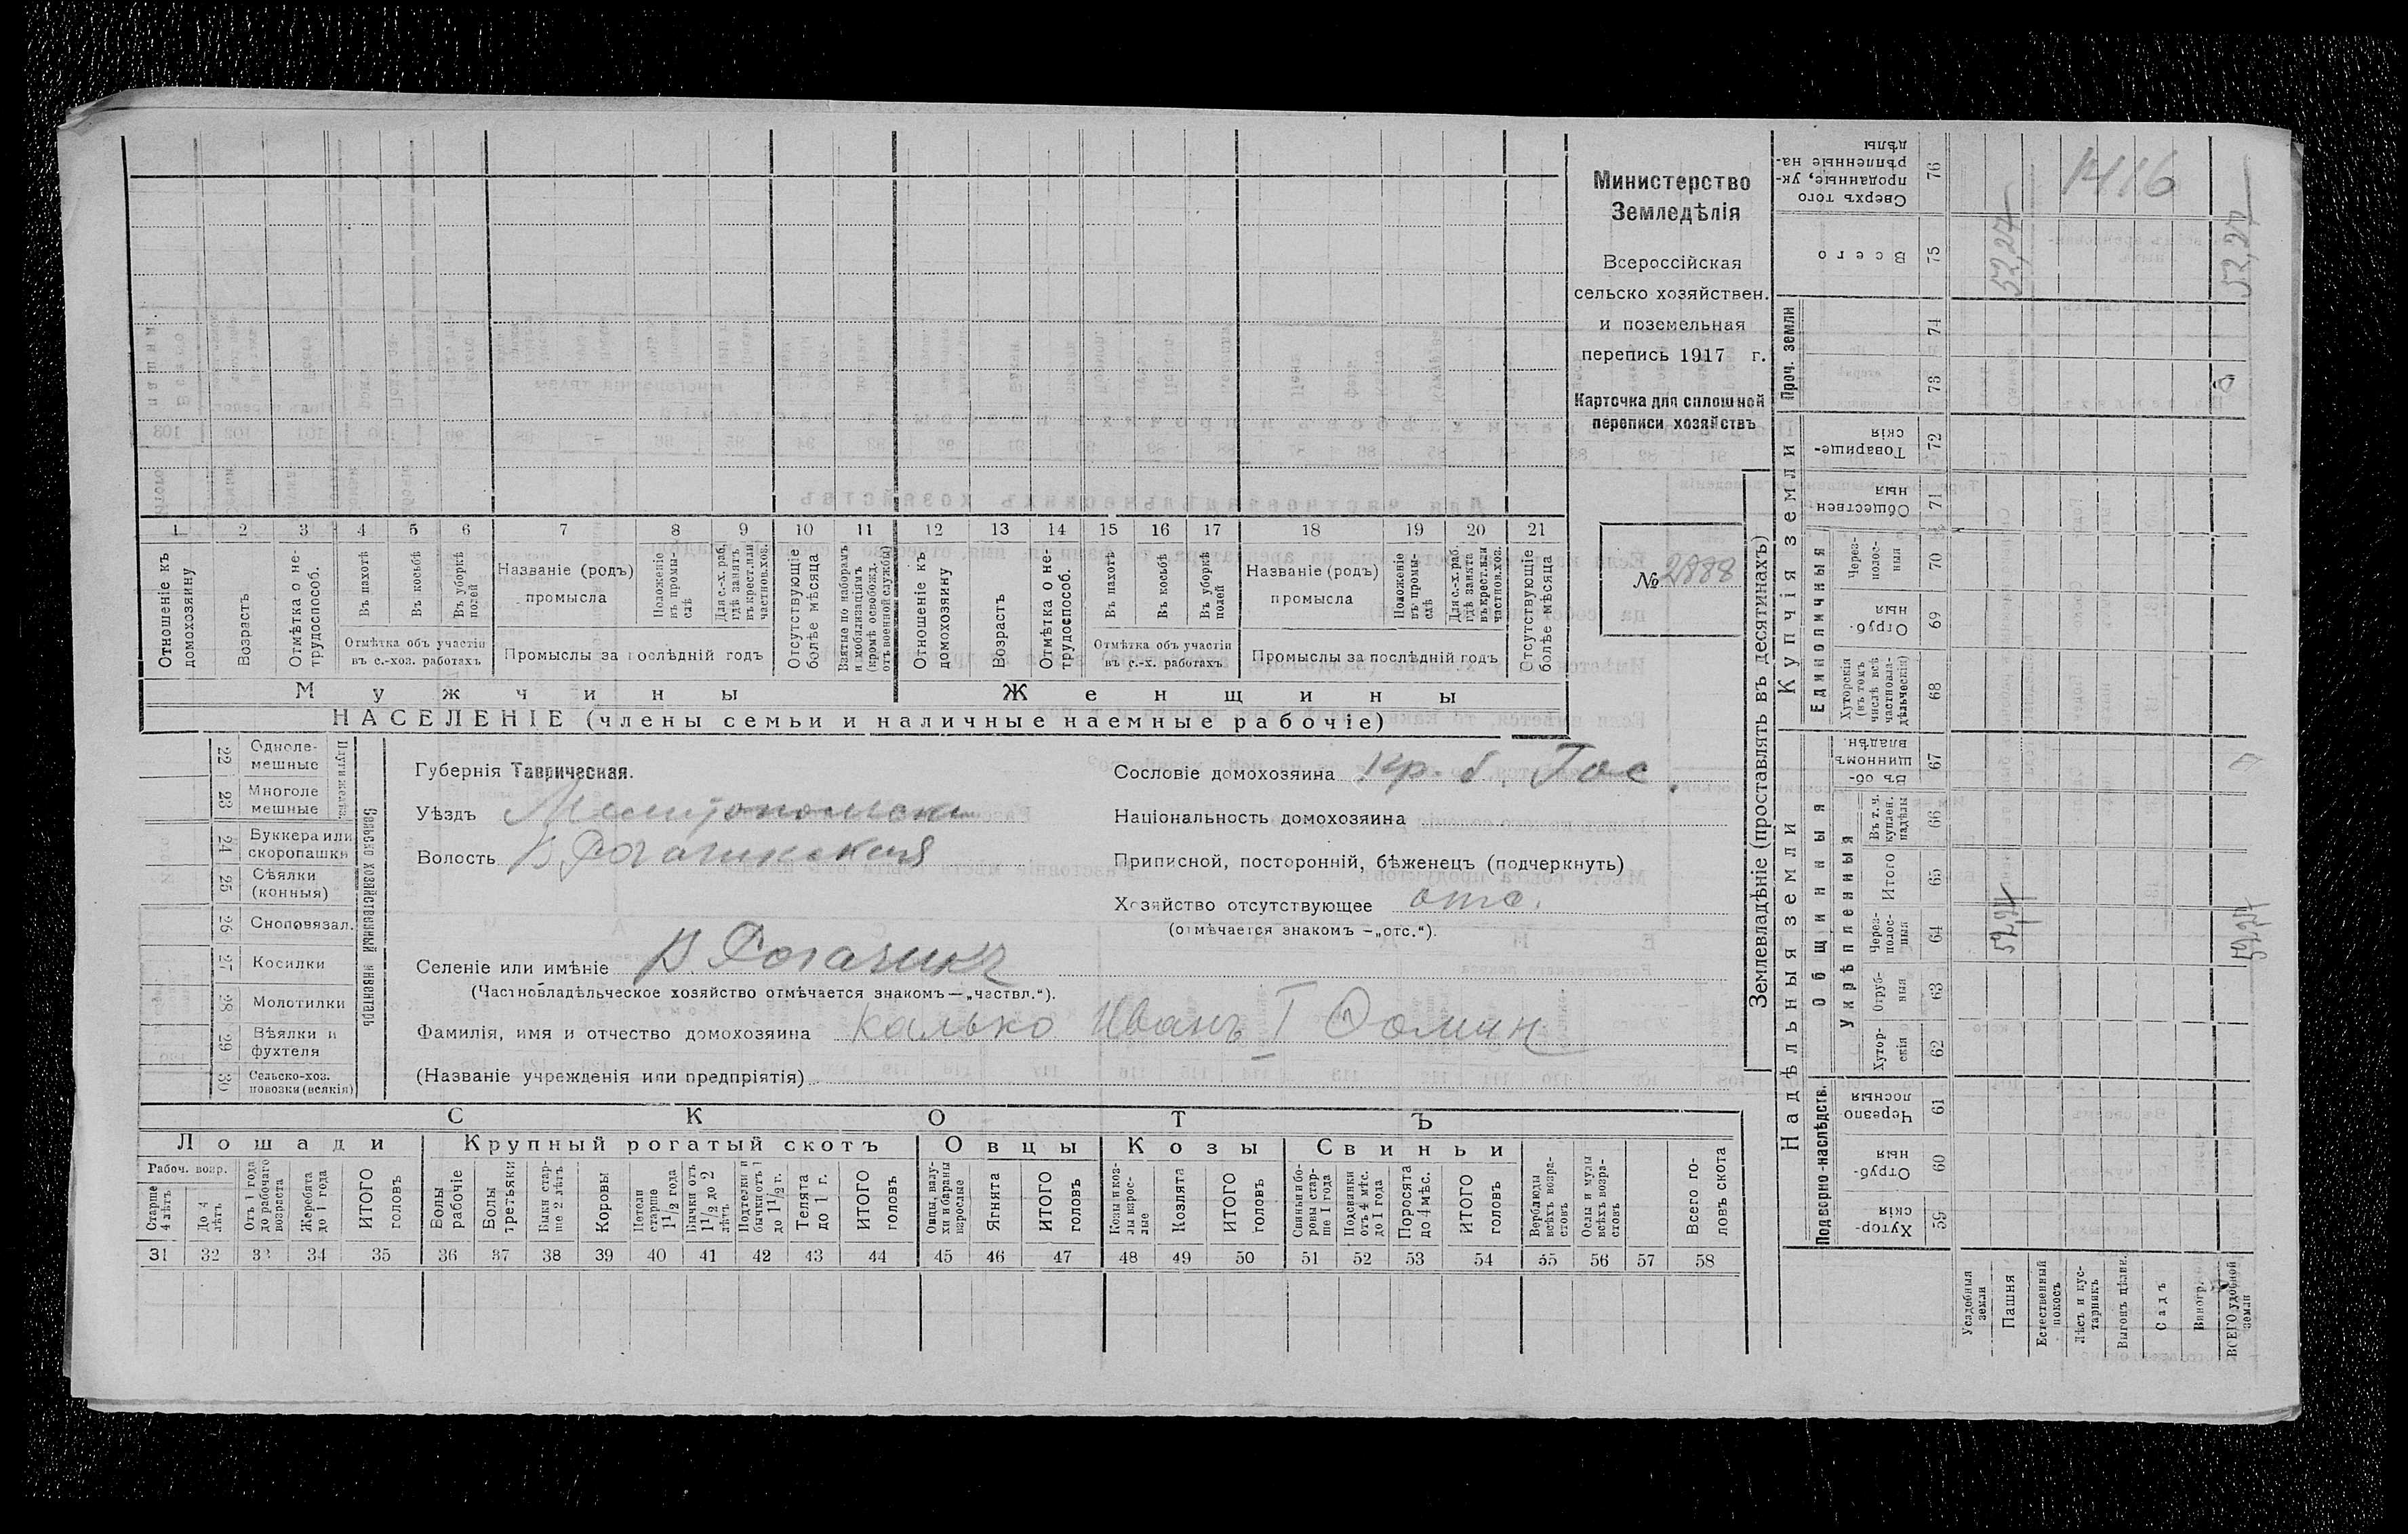 Министерство
Земледѣлія
Всероссійская
сельско хозяйствен.
и поземельная
перепись 1917 г.
Карточка для сплошной
переписи хозяйствъ
№ 2888
1 2 3 4 5 6 7 8 9 10 11 12 13 14 15 16 17 18 19 20 21
Отношеніе къ домохозяину
Возрастъ
Отмѣтка о не-трудоспособ.
Въ пахотѣ
Въ косьбѣ
Въ уборкѣ полей
Отмѣтка объ участіи
въ с.-хоз. работахъ
Названіе (родъ)
промысла
Положеніе въ промы-слѣ
Для с.-х. раб. гдѣ занятъ въ крест. или частнов. хоз.
Промыслы за послѣдній годъ
Отсутствующіе болѣе мѣсяца
Взятые по наборамъ и мобилизаціямъ (кромѣ освобожд. отъ военной службы)
Отношеніе къ домохозяину
Возрастъ
Отмѣтка о не-трудоспособ.
Въ пахотѣ
Въ косьбѣ
Въ уборкѣ полей
Отмѣтка объ участіи
въ с.-х. работахъ
Названіе (родъ)
промысла
Положеніе въ промы-слѣ
Для с.-х. раб. гдѣ занята въ крест. или частнов. хоз.
Промыслы за послѣдній годъ
Отсутствующіе болѣе мѣсяца
Мужчины
Женщины
НАСЕЛЕНІЕ (члены семьи и наличные наемные рабочіе)
Сельско хозяйственный инвентарь
22 Одноле-мешные
23 Многоле мешные
24 Буккера или скоропашки
25 Сѣялки (конныя)
26 Сноповязал.
27 Косилки
28 Молотилки
29 Вѣялки и фухтеля
30 Сельско-хоз. повозки (всякія)
Губернія Таврическая.
Уѣздъ
Волость В. Рогачикская
Сословіе домохозяина Кр. б. Гос.
Національность домохозяина
Приписной, посторонній, бѣженецъ (подчеркнуть)
Хозяйство отсутствующее отс.
(отмѣчается знакомъ —„отс.“).
Селеніе или имѣніе В Рогачикъ
(Частновладѣльческое хозяйство отмѣчается знакомъ—„частвл.“).
Фамилія, имя и отчество домохозяина Калько Иванъ I Фомин
(Названіе учрежденія или предпріятія)
СКОТЪ
Лошади Крупный рогатый скотъ Овцы Козы Свиньи
Рабоч. возр.
Старше 4 лѣтъ
До 4 лѣтъ
Отъ 1 года до рабочаго возраста
Жеребята до 1 года
ИТОГО головъ
Волы рабочіе
Волы третьяки
Быки стар-ше 2 лѣтъ
Коровы
Нетели старше 1 1/2 года
Бычки отъ 1 1/2 до 2 лѣтъ
Подтелки и бычки отъ 1 до 1 1/2 г.
Телята до 1 г.
ИТОГО головъ
Овцы, валу-хи и бараны взрослые
Ягнята
ИТОГО головъ
Козы и коз-лы взрос-лые
Козлята
ИТОГО головъ
Свиньи и бо-ровы стар-ше 1 года
Подсвинки отъ 4 мѣс. до 1 года
Поросята до 4 мѣс.
ИТОГО головъ
Верблюды всѣхъ возра-стовъ
Ослы и мулы всѣхъ возра-стовъ
Всего го-ловъ скота
31 32 33 34 35 36 37 38 39 40 41 42 43 44 45 46 47 48 49 50 51 52 53 54 55 56 57 58
Землевладѣніе (проставлять въ десятинахъ)
Надѣльныя земли
Купчія земли
Проч. земли
Подворно-наслѣдств.
Общинныя
Укрѣпленныя
Единоличныя
Хутор-скія 59
Отруб-ныя 60
Черезпо лосныя 61
Хутор-скія 62
Отруб-ныя 63
Через-полос-ныя 64
Итого 65
Въ т. ч. куплен. надѣлы 66
Въ об-щинномъ владѣн. 67
Хуторскія (въ томъ числѣ всѣ частновла-дѣльческія) 68
Отруб-ныя 69
Через-полос-ныя 70
Обществен ныя 71
Товарище-скія 72
73
74
Всего 75
Сверхъ того проданные, ук-рѣпленные на-дѣлы 76
Усадебныя земли
Пашня
Естественный покосъ
Лѣсъ и кус-тарникъ
Выгонъ цѣлин.
Садъ
Виногр.
ВСЕГО удобной земли
52,27
52,27
52,27
52,27
1416